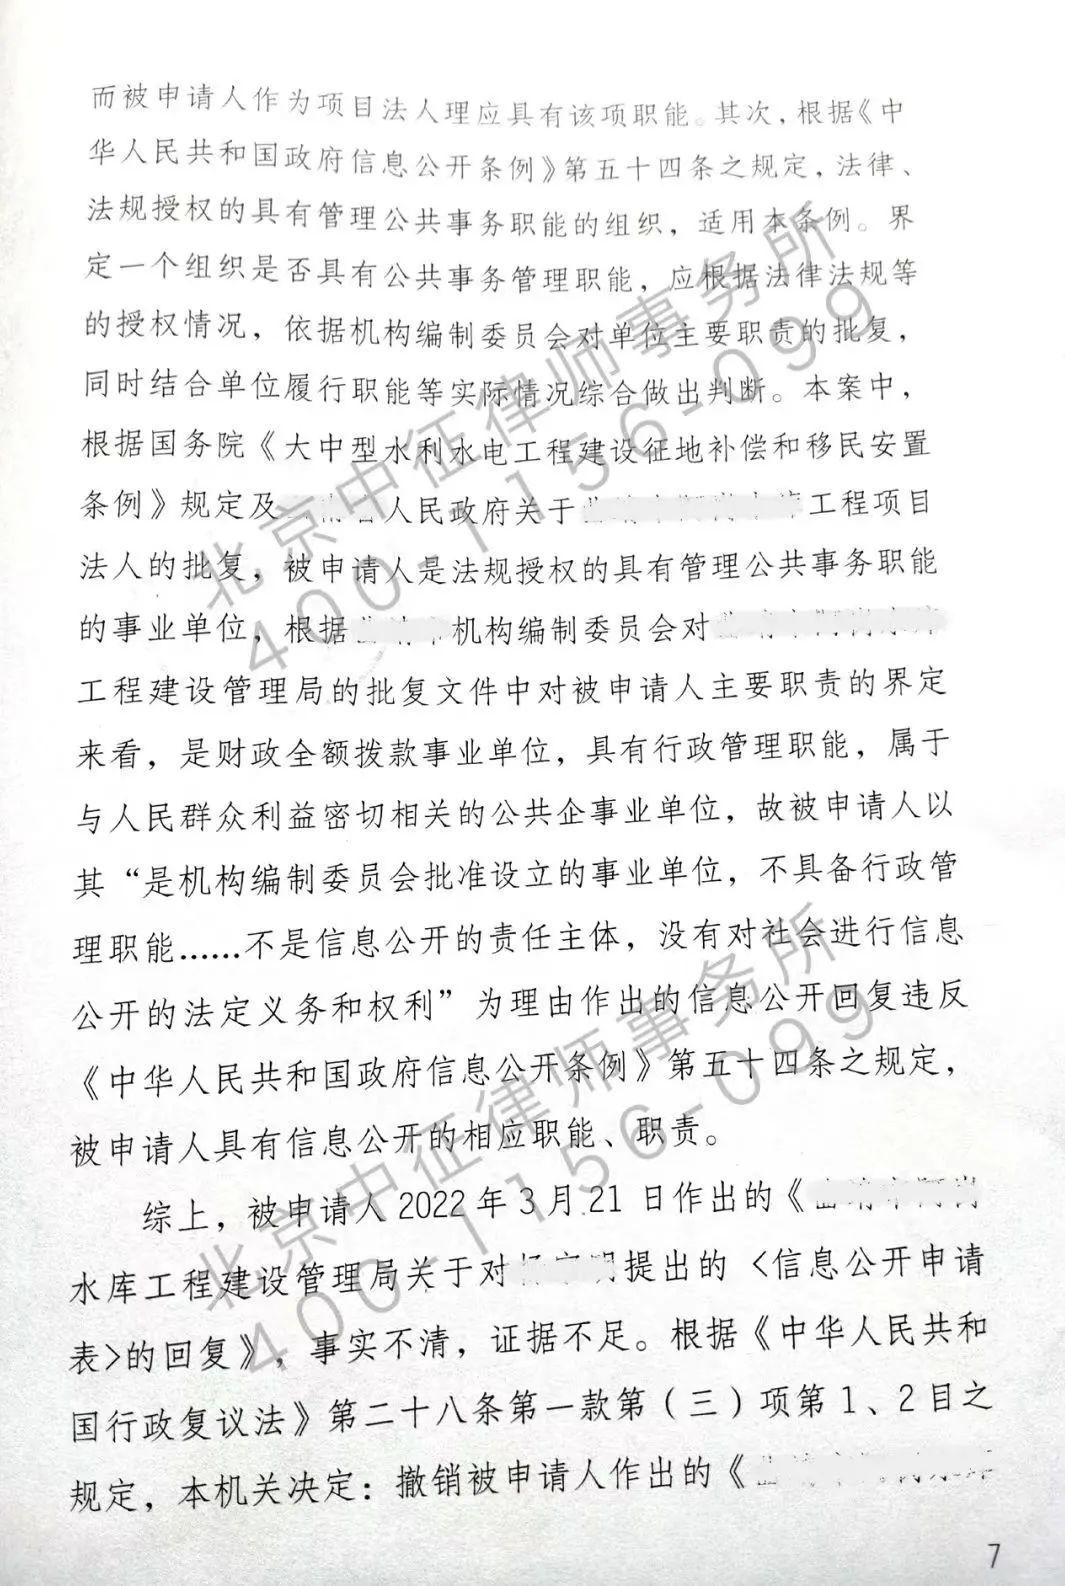 而被申请人作为项目法人理应具有该项职能。其次，根据《中
华人民共和国政府信息公开条例》第五十四条之规定，法律、
法规授权的具有管理公共事务职能的组织，适用本条例。界
定一个组织是否具有公共事务管理职能，应根据法律法规等
的授权情况，依据机构编制委员会对单位主要职责的批复，
同时结合单位履行职能等实际情况综合做出判断。本案中，
根据国务院《大中型水利水电工程建设征地补偿和移民安置
条例》规定及 人民政府关于 工程项目
法人的批复，被申请人是法规授权的具有管理公共事务职能
的事业单位，根据 机构编制委员会对
工程建设管理局的批复文件中对被申请人主要职责的界定
来看，是财政全额拨款事业单位，具有行政管理职能，属于
与人民群众利益密切相关的公共企事业单位，故被申请人以
其“是机构编制委员会批准设立的事业单位，不具备行政管
理职能……不是信息公开的责任主体，没有对社会进行信息
公开的法定义务和权利”为理由作出的信息公开回复违反
《中华人民共和国政府信息公开条例》第五十四条之规定，
被申请人具有信息公开的相应职能、职责。
综上，被申请人 2022 年 3 月 21 日作出的《
水库工程建设管理局关于对 提出的<信息公开申请
表>的回复》，事实不清，证据不足。根据《中华人民共和
国行政复议法》第二十八条第一款第（三）项第 1、2 目之
规定，本机关决定：撤销被申请人作出的《
7
北京中征律师事务所
400-1156-099
北京中征律师事务所
400-1156-099